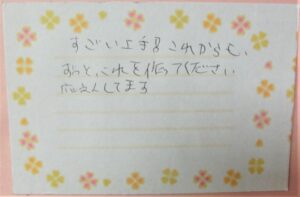 すごい上手！これからも、
ずっと、これを作ってください
応えんしてます